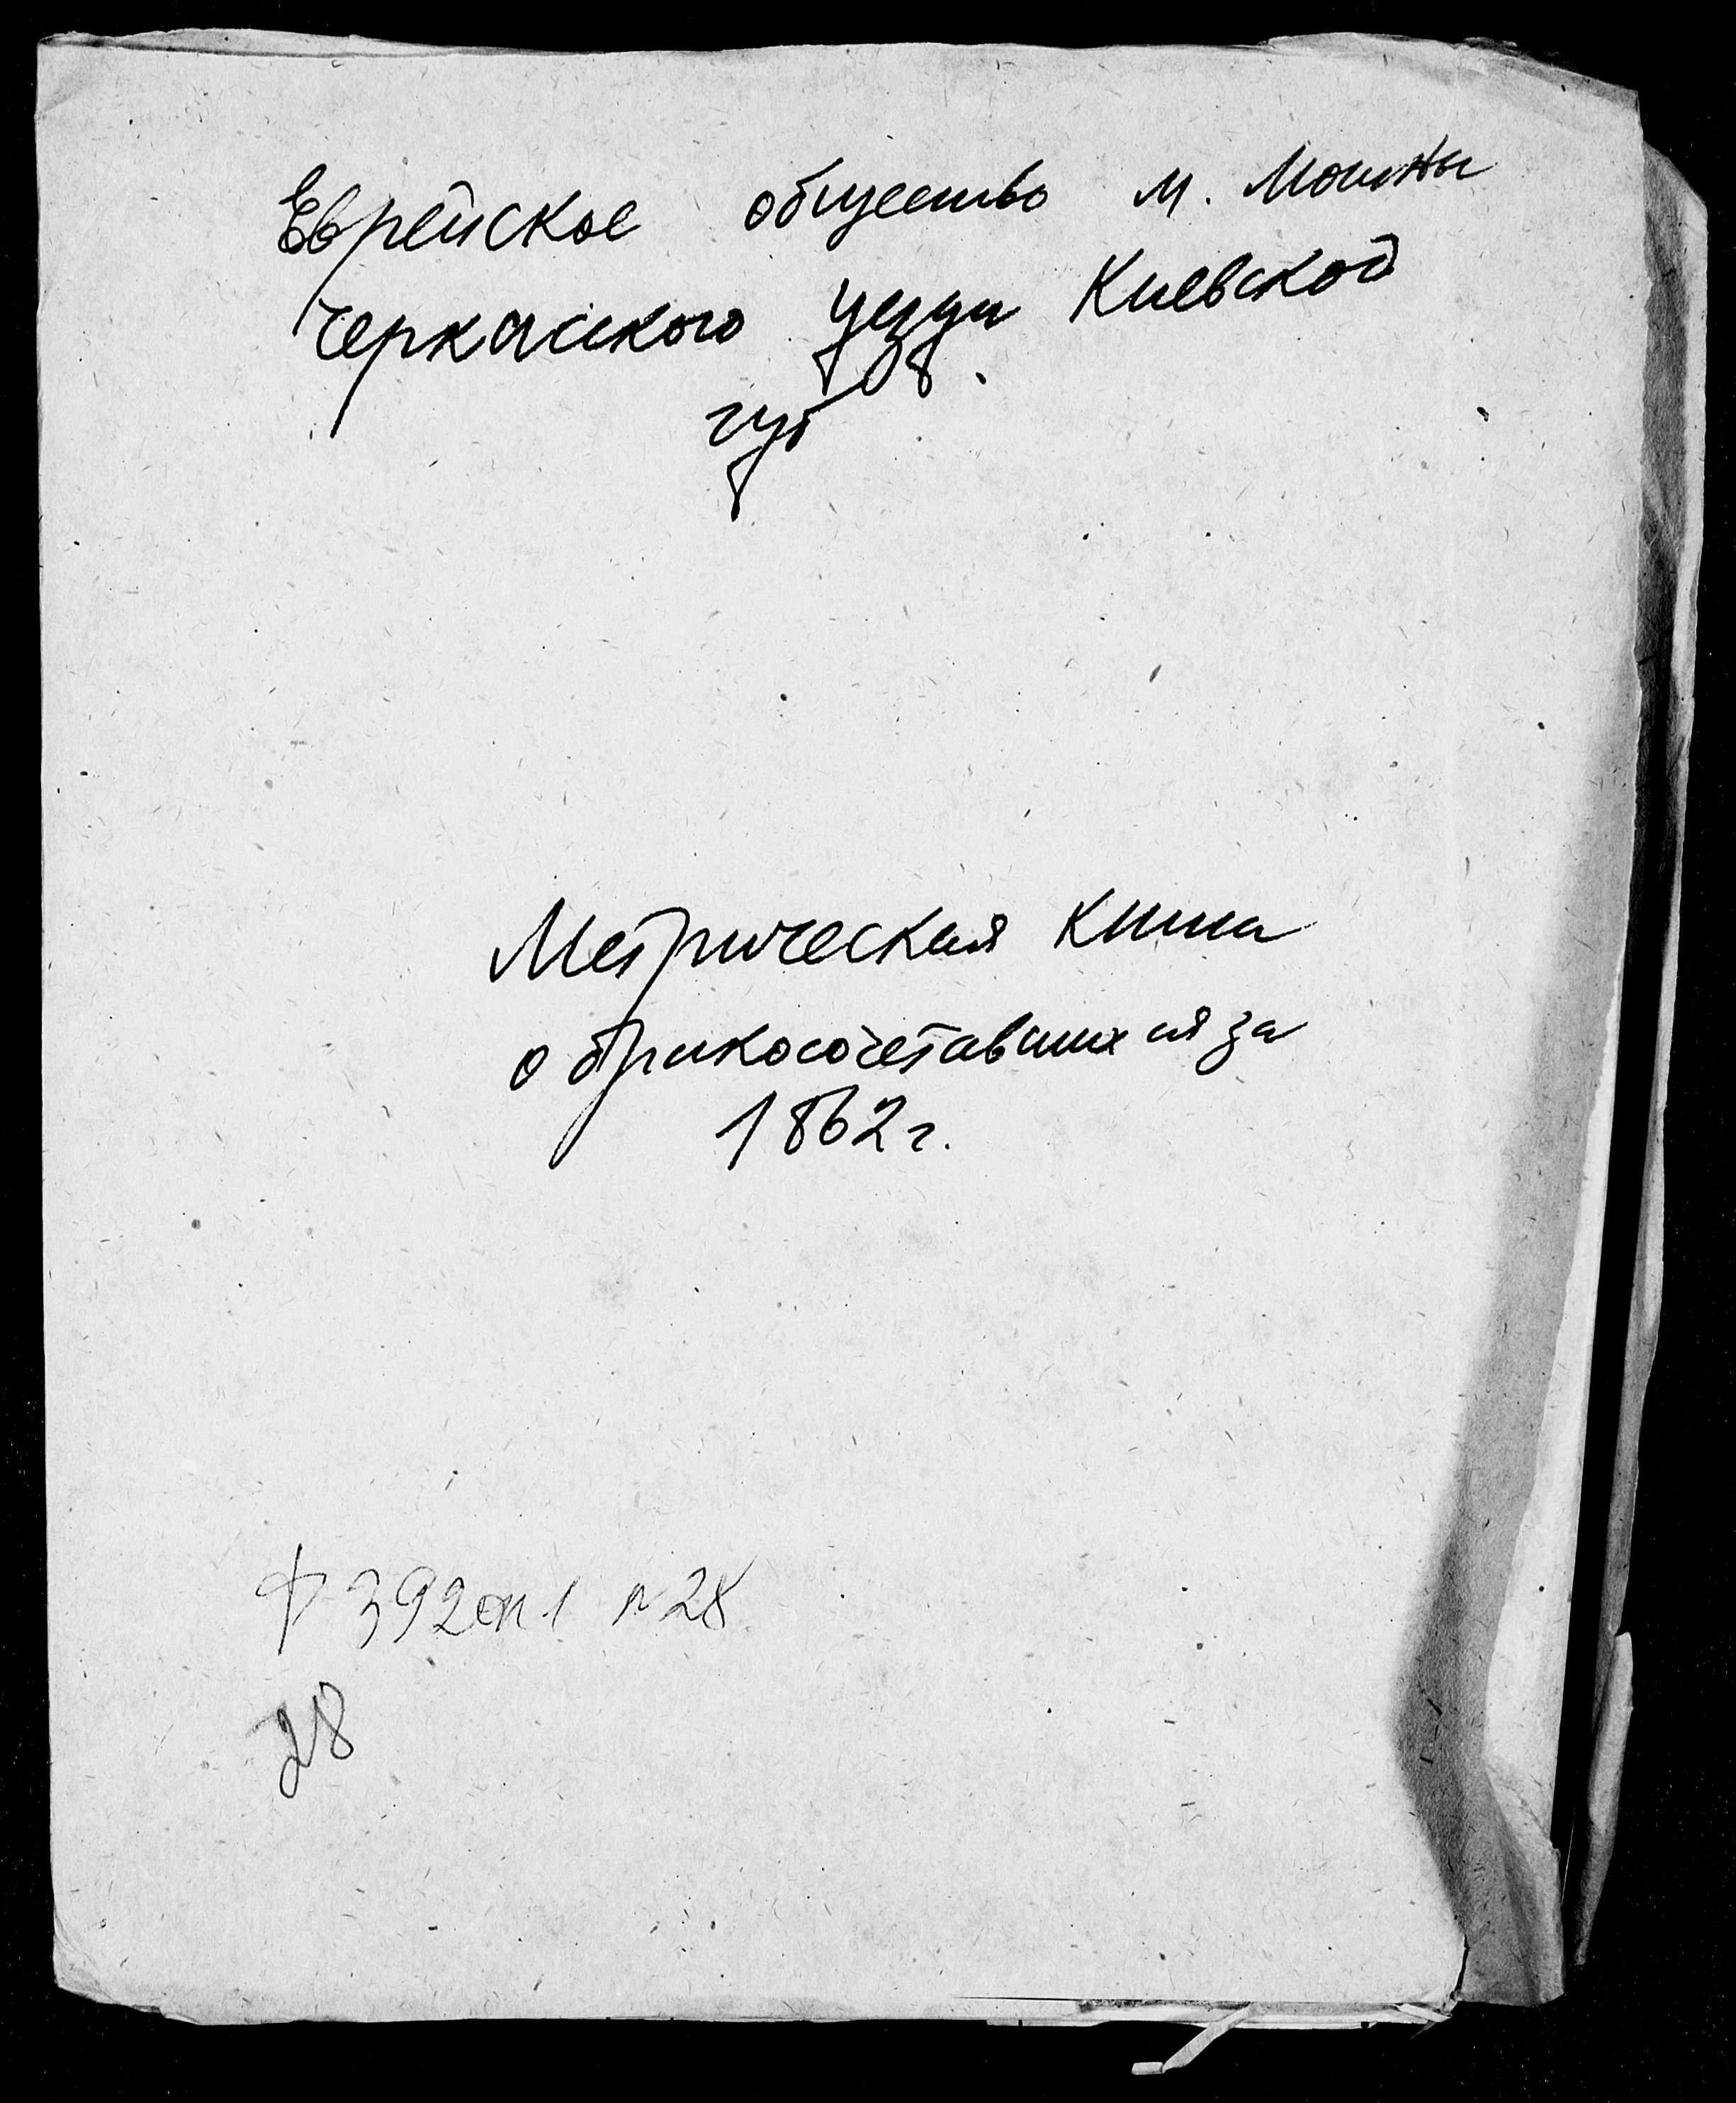 Еврейское общество м. Мошны
Черкасского уезда Киевской
губ.
Метрическая книга
о бракосочетавшихся за
1862 г.
Ф 392 оп 1 № 28
28